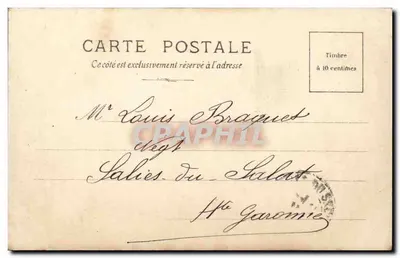 CARTE POSTALE
Ce côté est exclusivement réservé à l'adresse
Timbre
à 10 centimes
Mr Louis Braquet
Negt
CPAPHIL
Salies-du-Salat
Hte Garonne